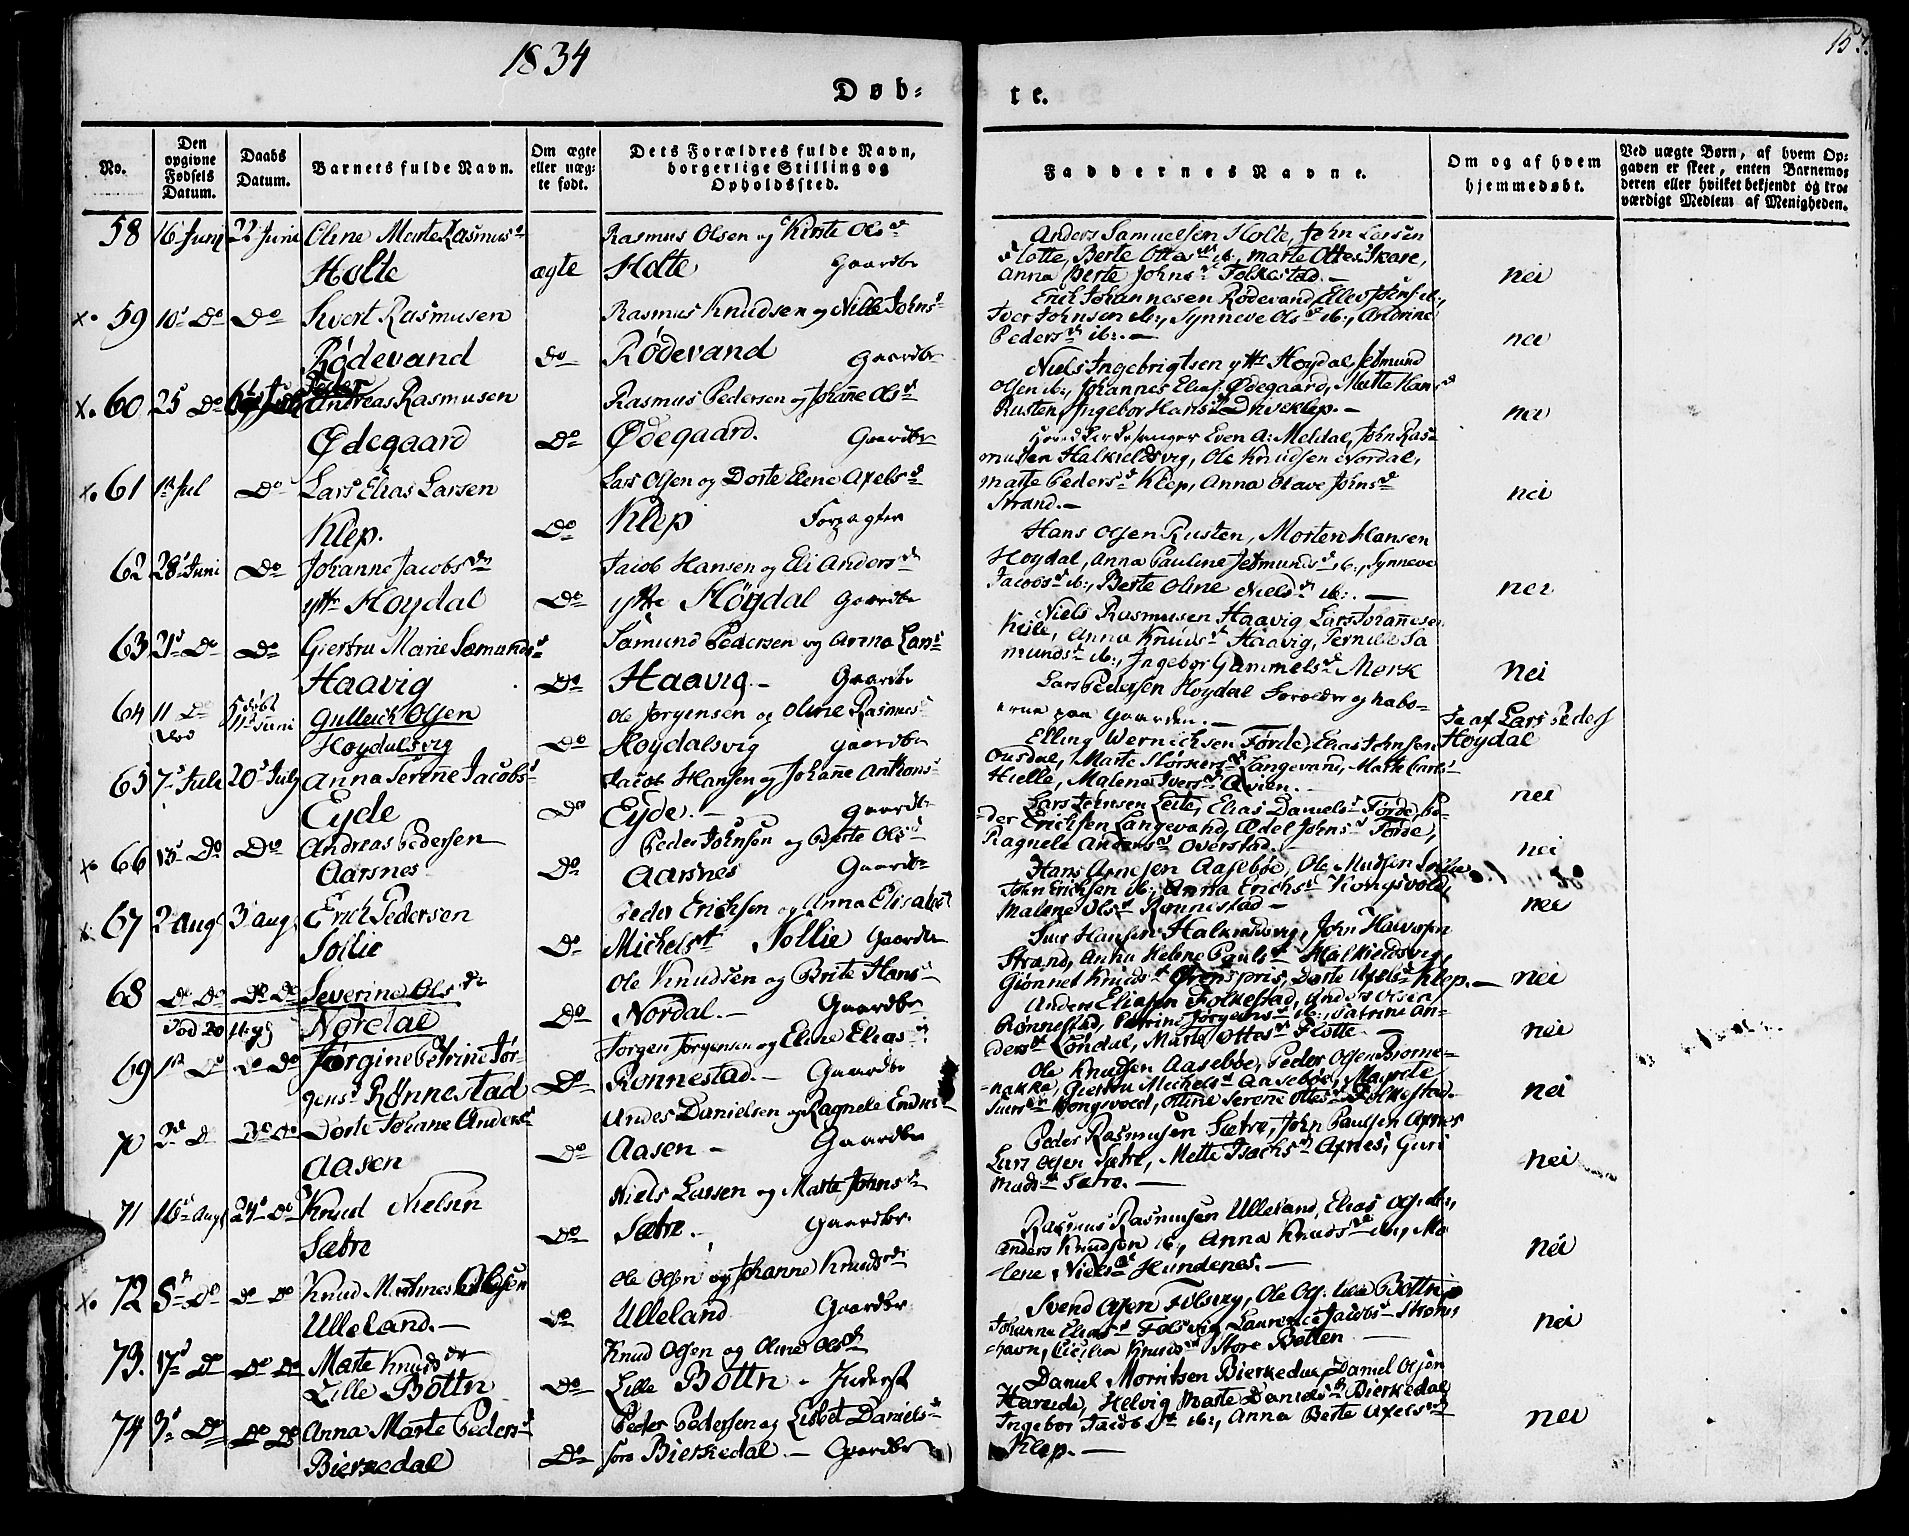 1834
157.
Døb-
te.
No.
Den opgivne Fødsels Datum.
Daabs Datum.
Barnets fulde Navn.
Om ægte eller uægte født.
Dets Forældres fulde Navn, borgerlige Stilling og Opholdssted.
Faddernes Navne.
Om og af hvem hjemmedøbt.
Ved uægte Børn, af hvem Opgaven er skeet, enten Barnemoderen eller hvilket bekjendt og troværdigt Medlem af Menigheden.
58 16 Juni 22 Juni Oline Marte Rasmusd
Holte ægte
Rasmus Olsen og Kirste Olsd
Holte Gaardbr
Anders Samuelsen Holte, John Larsen
Flotte, Berte Ottesd ib:, Marte Ottesd Skare,
Anna Berte Johnsd Folkestad.—
nei
x. 59 10d Do Do Sivert Rasmusen
Rødevand Do
Rasmus Knudsen og Nille Johnsd
Rødevand Gaardbr
Erich Johannesen Rødevand,
Iver Johnsen ib:, Synneve Olsd ib:,
Pedersd ib:.—
nei
x. 60 25 Do Andreas Rasmusen
Ødegaard Do
Rasmus Pedersen og Johanne Olsd
Ødegaard. Gaardbr
Niels Ingebrigtsen ytte Hoydal, Jetmund
Olsen ib:, Johannes Elias. Ødegaard, Mette Hansd
Rusten, Ingebor Hansd
nei
x. 61 1st Jul Do Lars Elias Larsen
Klep. Do
Lars Olsen og Dorte Elene Axelsd
Klep Forpagter
Kirkesanger Even A: Meldal, John Ras-
musen Halkieldsvig, Ole Knudsen Nordal,
Marte Pedersd Klep, Anna Olave Johnsd
Strand.—
nei
62 28 Juni Do Johanne Jacobsdr
ytte Hoydal Do
Jacob Hansen og Eli Andersd
ytte Höydal Gaardbr
Hans Olsen Rusten, Morten Hansen
Hoydal, Anna Pauline Jetmundsd ib:, Synneve
Jacobsd ib:, Berte Oline Nielsd ib:.—
nei
63 21d Do Do Giertru Marie Sæmundsd
Haavig Do
Sæmund Pedersen og Anna Larsd
Haavig.— Gaardbr
Niels Rasmusen Haavig, Lars Johannesen
Heile, Anna Knudsd Haavig, Pernille Sæ-
mundsd ib:, Ingebor Gammelsd Mork
Nei
64 11 Do Død 5 døbt 11 Juni Gullech Olsen
Hoydalsvig Do
Ole Jorgensen og Oline Rasmusd
Hoydalsvig Gaardbr
Lars Pedersen Hoydal Forældre og Nabo-
erne paa Gaarden.—
Ja af Lars Peders
Hoydal
65 7d Juli 20d July Anna Serine Jacobsd
Eyde Do
Jacob Hansen og Johanne Anthonsd
Eyde.— Gaardbr
Elling Wernichsen Førde, Elias Johnsen
Ousdal, Marte Størkersd Langevand, Marte Larsd
Hielle, Malene Iversd Qvien.—
nei
x. 66 13d Do Do Andreas Pedersen
Aarsnes Do
Peder Johnson og Berte Olsd
Aarsnes Gaardbr
Lars Johnsen Leite, Elias Danielsd Førde, Pe-
der Erichsen Langevand, Ædel Johnsd Førde,
Ragnele Andersd Overstad.—
nei
x. 67 2 Aug 3 aug. Erich Pedersen
Sollie Do
Peder Erichsen og Anna Elisabet
Michelsd Sollie Gaardbr
Hans Arnesen Aasebøe, Ole
John Erichsen ib: Anna Erichsd Kongsvold,
Malene Olsd Rønnestad—
nei
68 Do Do Do Do Severine Olsdr
død 20 Aug Nordal Do
Ole Knudsen og Brite Hansd
Nordal.— Gaardbr
Hansen Halkieldsvig, John Halvorsen
Strand, Anna Helene Paulsd Halkieldsvig,
Giønnet Knudsd Ørenspris, Dorte Axelsd Klep.—
nei
69 1st Do Do Do Jørgine Petrine Jør-
gensd Rønnestad Do
Jorgen Jorgensen og Eline Eliasd
Ronnestad.— Gaardbr
Anders Eliasen Folkestad, Anders Olsen
Rønnestad, Petrine Jørgensd ib:, Catrine An-
dersd Løndal, Marte Ottesd Flotte—
nei
70 3d D Do Do Dorte Johane Andersd
Aasen Do
Anders Danielsen og Ragnele Endresd
Aasen— Gaardbr
Ole Knudsen Aasebøe, Peder Olsen Biørne-
nakke, Giertru Michelsd Aasebøe, Magrete
Kongsvold, Oline Serene Ottesd Folkestad.
nei
71 16d Aug 24d Do Knud Nielsen
Sætre Do
Niels Larsen og Marte Johnsd
Sætre.— Gaardbr.
Peder Rasmusen Sætre, John Paulsen Axnes
Lars Olsen Sætre, Mette Isachsd Axnes, Guri
Madsd Sætre.—
nei
x. 72 8d Do Do Do Knud Olsen
Ulleland.— Do
Ole Olsen og Johanne Knudsdr
Ulleland Gaardbr
Rasmus Rasmusen Ulleland, Elias Ols. ib:,
Anders Knudsen ib:, Anna Knudsd ib:, Ma-
lene Nielsd Hundenes.—
nei
73. 17d Do Do Do Marte Knudsdr
Lille Bottn Do
Knud Olsen og Oline Olsd
Lille Bottn— Inderst
Svend Olsen Folsvig, Ole Ols. Lille Bottn
Johanne Eliasd Folsvig, Laurence Jacobsd
havn, Cicilia Knudsd Store Botten—
nei
74 3d Do Do Do Anna Marte Pedersd
Bierkedal Do
Peder Pedersen og Lisbet Danielsd
Bierkedal— Gaardbr
Daniel Moritsen Bierkedal, Daniel Olsen
Hareide, Helvig Marte Danielsd Bierkedal
Ingebor Jacobsd ib:, Anna Berte Axelsd
Klep.—
nei